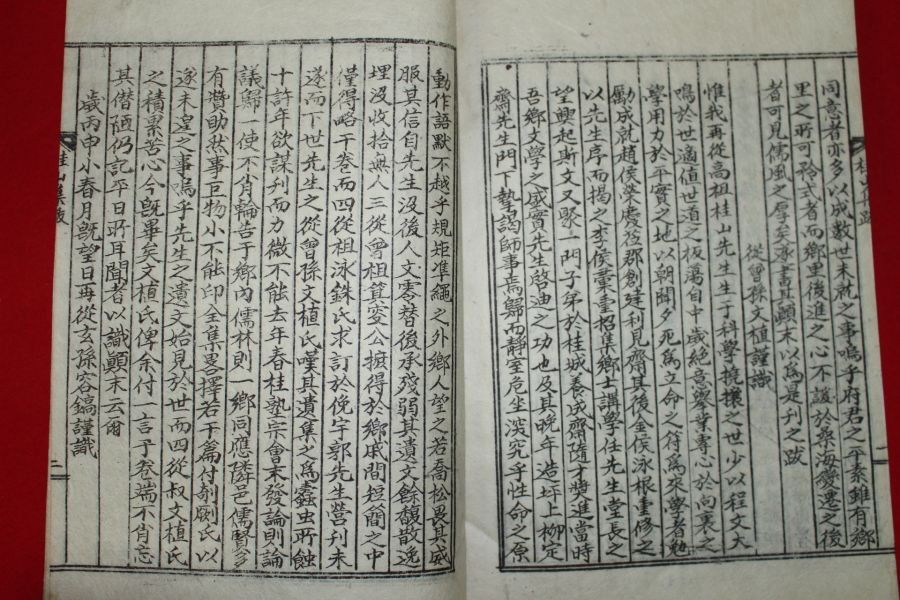 同意者亦多以成數世未就之事嗚乎府君之平素雖有鄕
里之所可矜式者而鄕里後進之心不諼於桑海變遷之後
者可見儒風之厚矣遂書其顚末以爲是刊之跋
從曾孫文植謹識
惟我再從高祖桂山先生生于科學撓攘之世少以程文大
鳴於世適値世道之板蕩自中歲絶意擧業專心於向裏之
學用力於平實之地以朝聞夕死爲立命之符爲來學者勉
勵成就趙侯榮慶莅郡創建利見齋其後金侯泳根重修之
以先生序而揭之李侯莗重招集鄕士講學任先生堂長之
望興起斯文又聚一門子弟於桂城養成齋隨才奬進當時
吾鄕文學之盛實先生啓迪之功也及其晩年造坪上柳定
齋先生門下執謁師事焉歸而靜室危坐湥究乎性命之原
桂山集跋
動作語默不越乎規矩準繩之外鄕人望之若喬松畏其威
服其信自先生沒後人文零替後承殘弱其遺文餘馥散逸
埋沒收拾無人三從曾祖箕燮公摭得於鄕戚間短簡之中
僅得略干卷而四從祖泳銖氏求訂於俛宇郭先生營刊未
遂而下世先生之從曾孫文植氏嘆其遺集之爲蠹虫所蝕
十許年欲謀刊而力微不能去年春桂塾宗會末發論則論
議歸一使不肖輪告于鄕內儒林則一鄕同應隣邑儒賢多
有贊助然事巨物小不能印全集畧擇若干篇付剞劂氏以
遂未遑之事嗚乎先生之遺文始見於世而四從叔文植氏
之積累苦心今旣事矣文植氏俾余付一言于卷端不肖忘
其僭陋仍記平日所耳聞者以識顚末云爾
歲丙申小春月旣望日再從玄孫容鎬謹識
桂山集跋
二